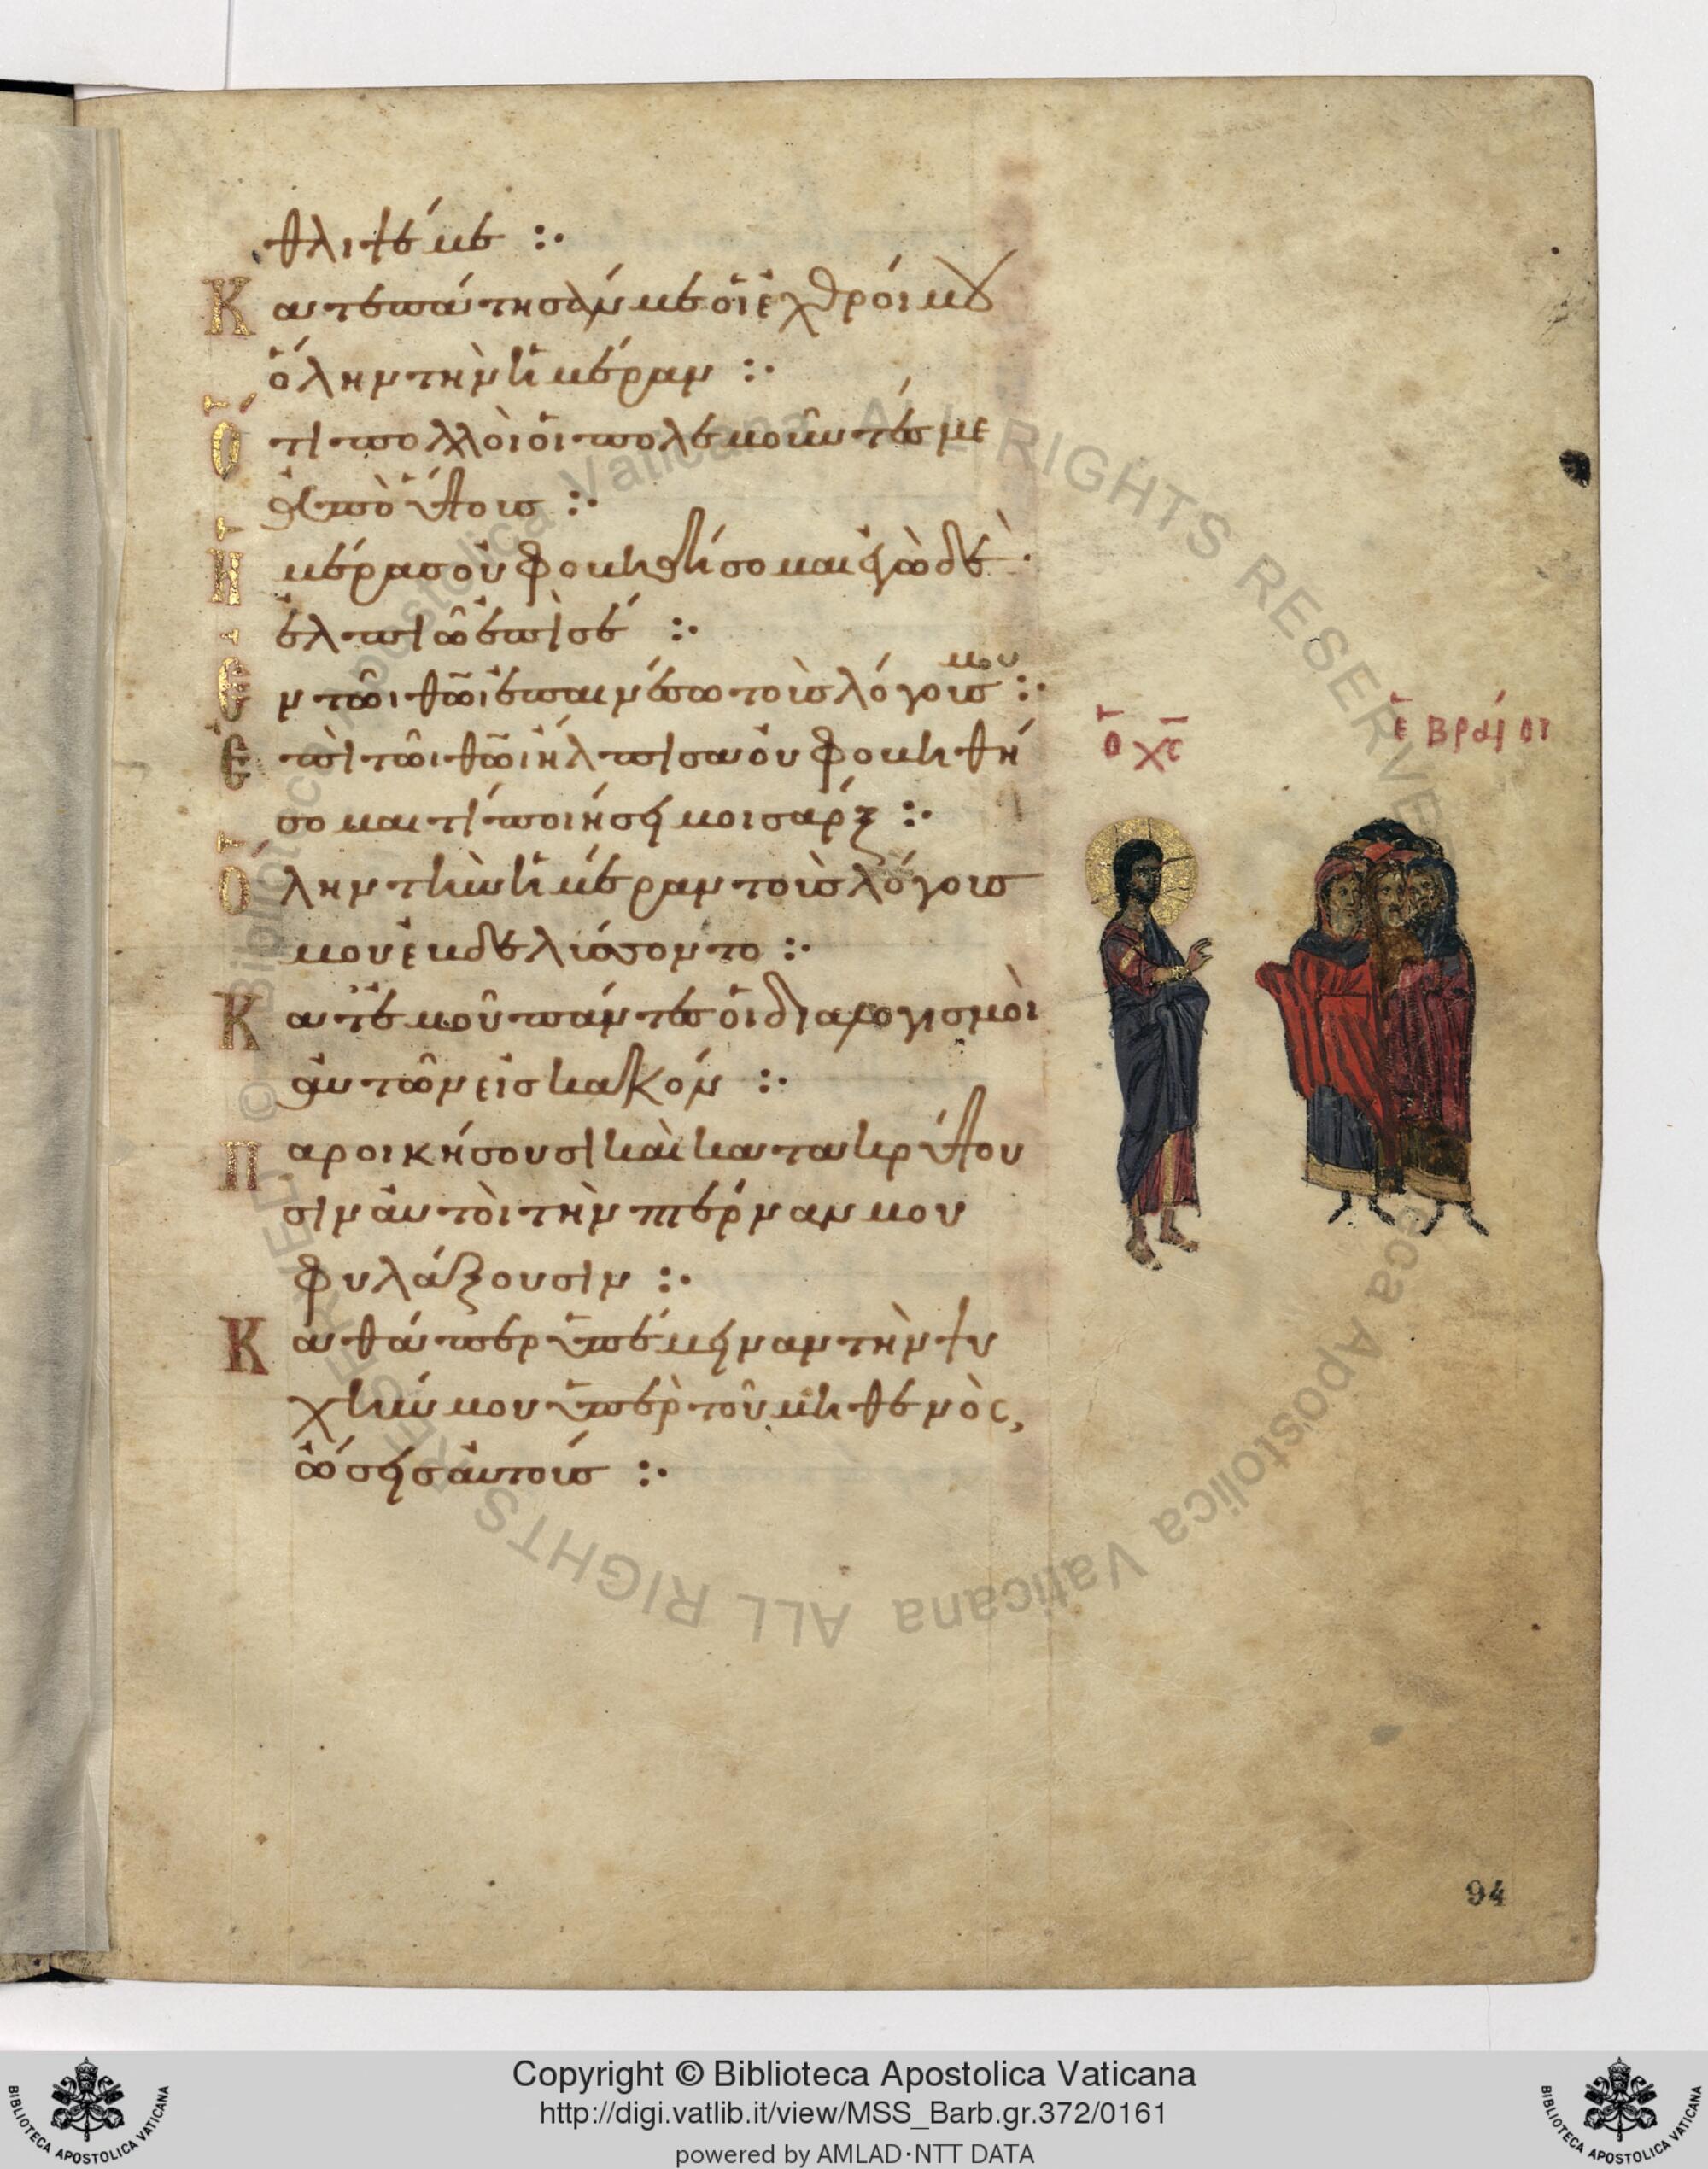 ἔθλιψέ με :·
Κατεπάτησάν με οἱ ἐχθροί μου
ὅλην τὴν ἡμέραν :·
Ὅτι πολλοὶ οἱ πολεμοῦντές με
ἀπὸ ὕψους :·
Ἡμέρας οὐ φοβηθήσομαι ἐγὼ δὲ
ἐλπιῶ ἐπὶ σέ :·
Ἐν τῶι θῶι ἐπαινέσω τοῖς λόγοις μου :·
Ἐπὶ τῶι θῶι ἤλπισα οὐ φοβηθή
σομαι τί ποιήσει μοι σάρξ :·
Ὅλην τὴν ἡμέραν τοῖς λόγοις
μου ἐβδελύσσοντο :·
Κατ' ἐμοῦ πάντες οἱ διαλογισμοὶ
αὐτῶν εἰς κακόν :·
Παροικήσουσι καὶ κατακρύψου
σιν αὐτοὶ τὴν πτέρναν μου
φυλάξουσιν :·
Καθάπερ ὑπέμειναν τὴν ψυ
χήν μου ὑπὲρ τοῦ μηθενὸς,
ὤσεις αὐτούς :·
ὁ χς
ἑβραίοι
94
© Biblioteca Apostolica Vaticana ALL RIGHTS RESERVED
Copyright © Biblioteca Apostolica Vaticana
http://digi.vatlib.it/view/MSS_Barb.gr.372/0161
powered by AMLAD·NTT DATA
BIBLIOTECA APOSTOLICA VATICANA
BIBLIOTECA APOSTOLICA VATICANA